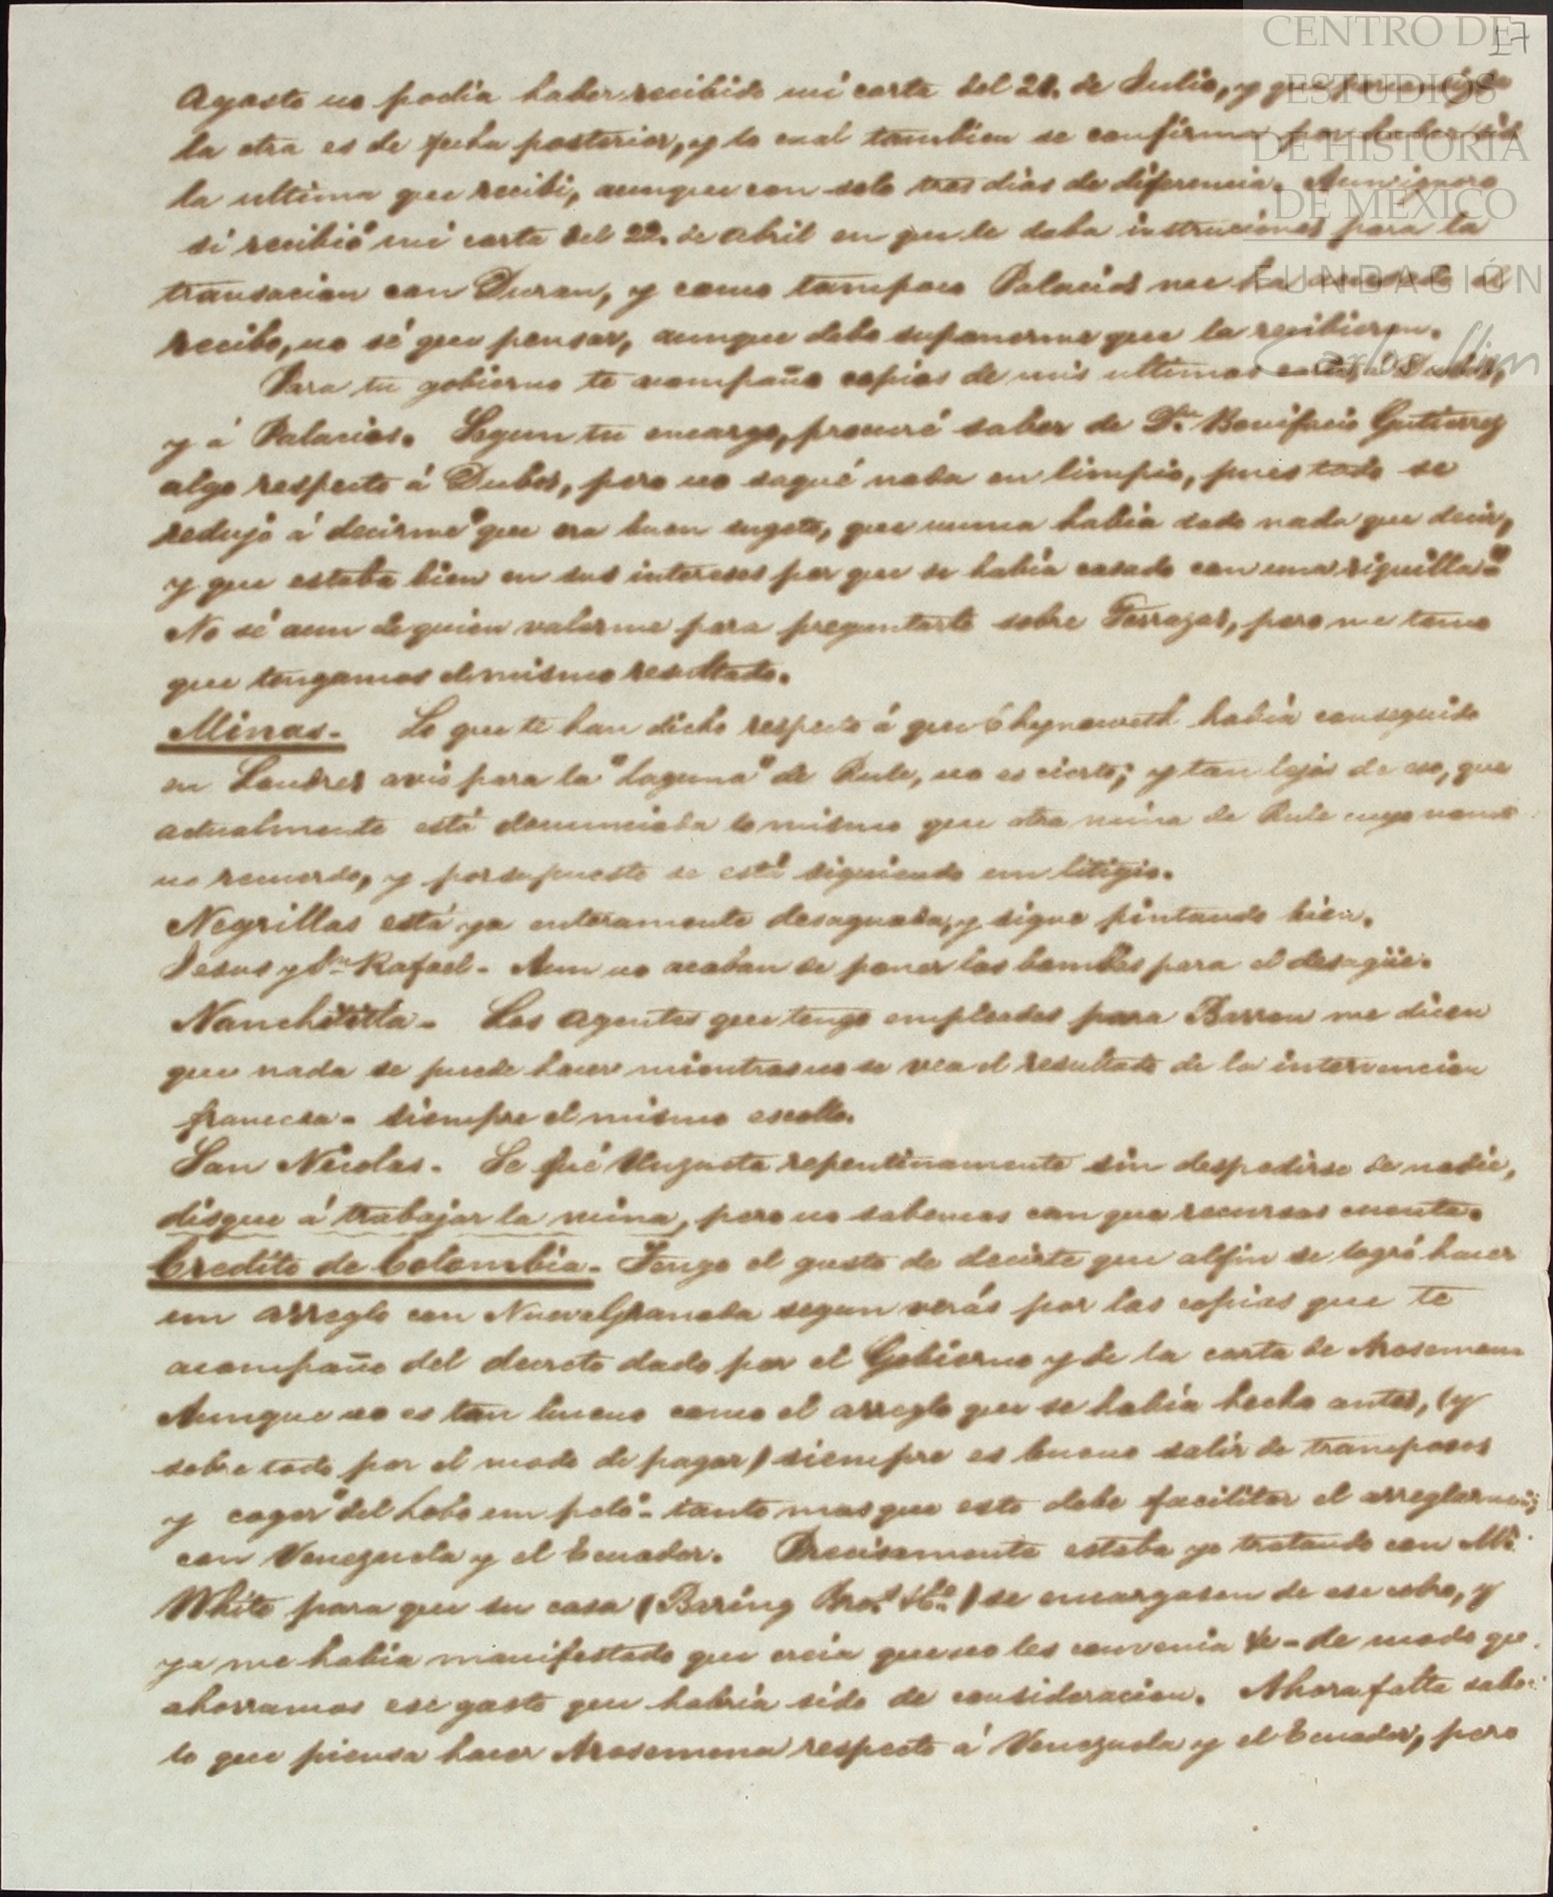 17
CENTRO DE
ESTUDIOS
DE HISTORIA
DE MEXICO
FUNDACIÓN
Carlos Slim
Agosto no podia haber recibido mi carta del 28. de Julio, y que por consig.
la otra es de fecha posterior, y lo cual tambien se confirma por haber sido
la ultima que recibi, aunque con solo tres dias de diferencia. Aun ignoro
si recibió mi carta del 22. de Abril en que le daba instruciones para la
transacion con Duran, y como tampoco Palacios me ha acusado su
recibo, no sé que pensar, aunque debo suponerme que la recibieron.
Para tu gobierno te acompaño copias de mis ultimas cartas á Dubos,
y á Palacios. Segun tu encargo, procuré saber de Dn. Bonifacio Gutierrez
algo respecto á Dubos, pero no saqué nada en limpio, pues todo se
redujo á decirme "que era buen sugeto, que nunca habia dado nada que decir,
y que estaba bien en sus intereses por que se habia casado con una riquilla."
No sé aun de quien valerme para preguntarle sobre Terrazas, pero me temo
que tengamos el mismo resultado.
Minas. Lo que te han dicho respecto á que Chynoweth habia conseguido
en Londres avio para la "laguna" de Rule, no es cierto; y tan lejos de eso, que
actualmente está denunciada lo mismo que otra mina de Rule cuyo nombre
no recuerdo, y por supuesto se está siguiendo un litigio.
Negrillas está ya enteramente desaguada, y sigue pintando bien.
Jesus y Sn Rafael. Aun no acaban de poner las bombas para el desagüe.
Nanchititla. Los agentes que tengo empleados para Barron me dicen
que nada se puede hacer mientras no se vea el resultado de la intervencion
francesa - siempre el mismo escollo.
San Nicolas. Se fué Unzueta repentinamente sin despedirse de nadie,
disque á trabajar la mina, pero no sabemos con que recursos cuenta.
Credito de Colombia. Tengo el gusto de decirte que al fin se logró hacer
un arreglo con Nueva Granada segun verás por las copias que te
acompaño del decreto dado por el Gobierno y de la carta de Arosemena
Aunque no es tan bueno como el arreglo que se habia hecho antes, (y
sobre todo por el modo de pagar) siempre es bueno salir de tramposos
y coger "del lobo un pelo" - tanto mas que esto debe facilitar el arreglarnos
con Venezuela y el Ecuador. Precisamente estaba yo tratando con Mr.
White para que su casa (Baring Bros. & Co.) se encargasen de ese cobro, y
ya me habia manifestado que creia que no les convenia &c - de modo que
ahorramos ese gasto que habria sido de consideracion. Ahora falta saber
lo que piensa hacer Arosemena respecto á Venezuela y el Ecuador, pero